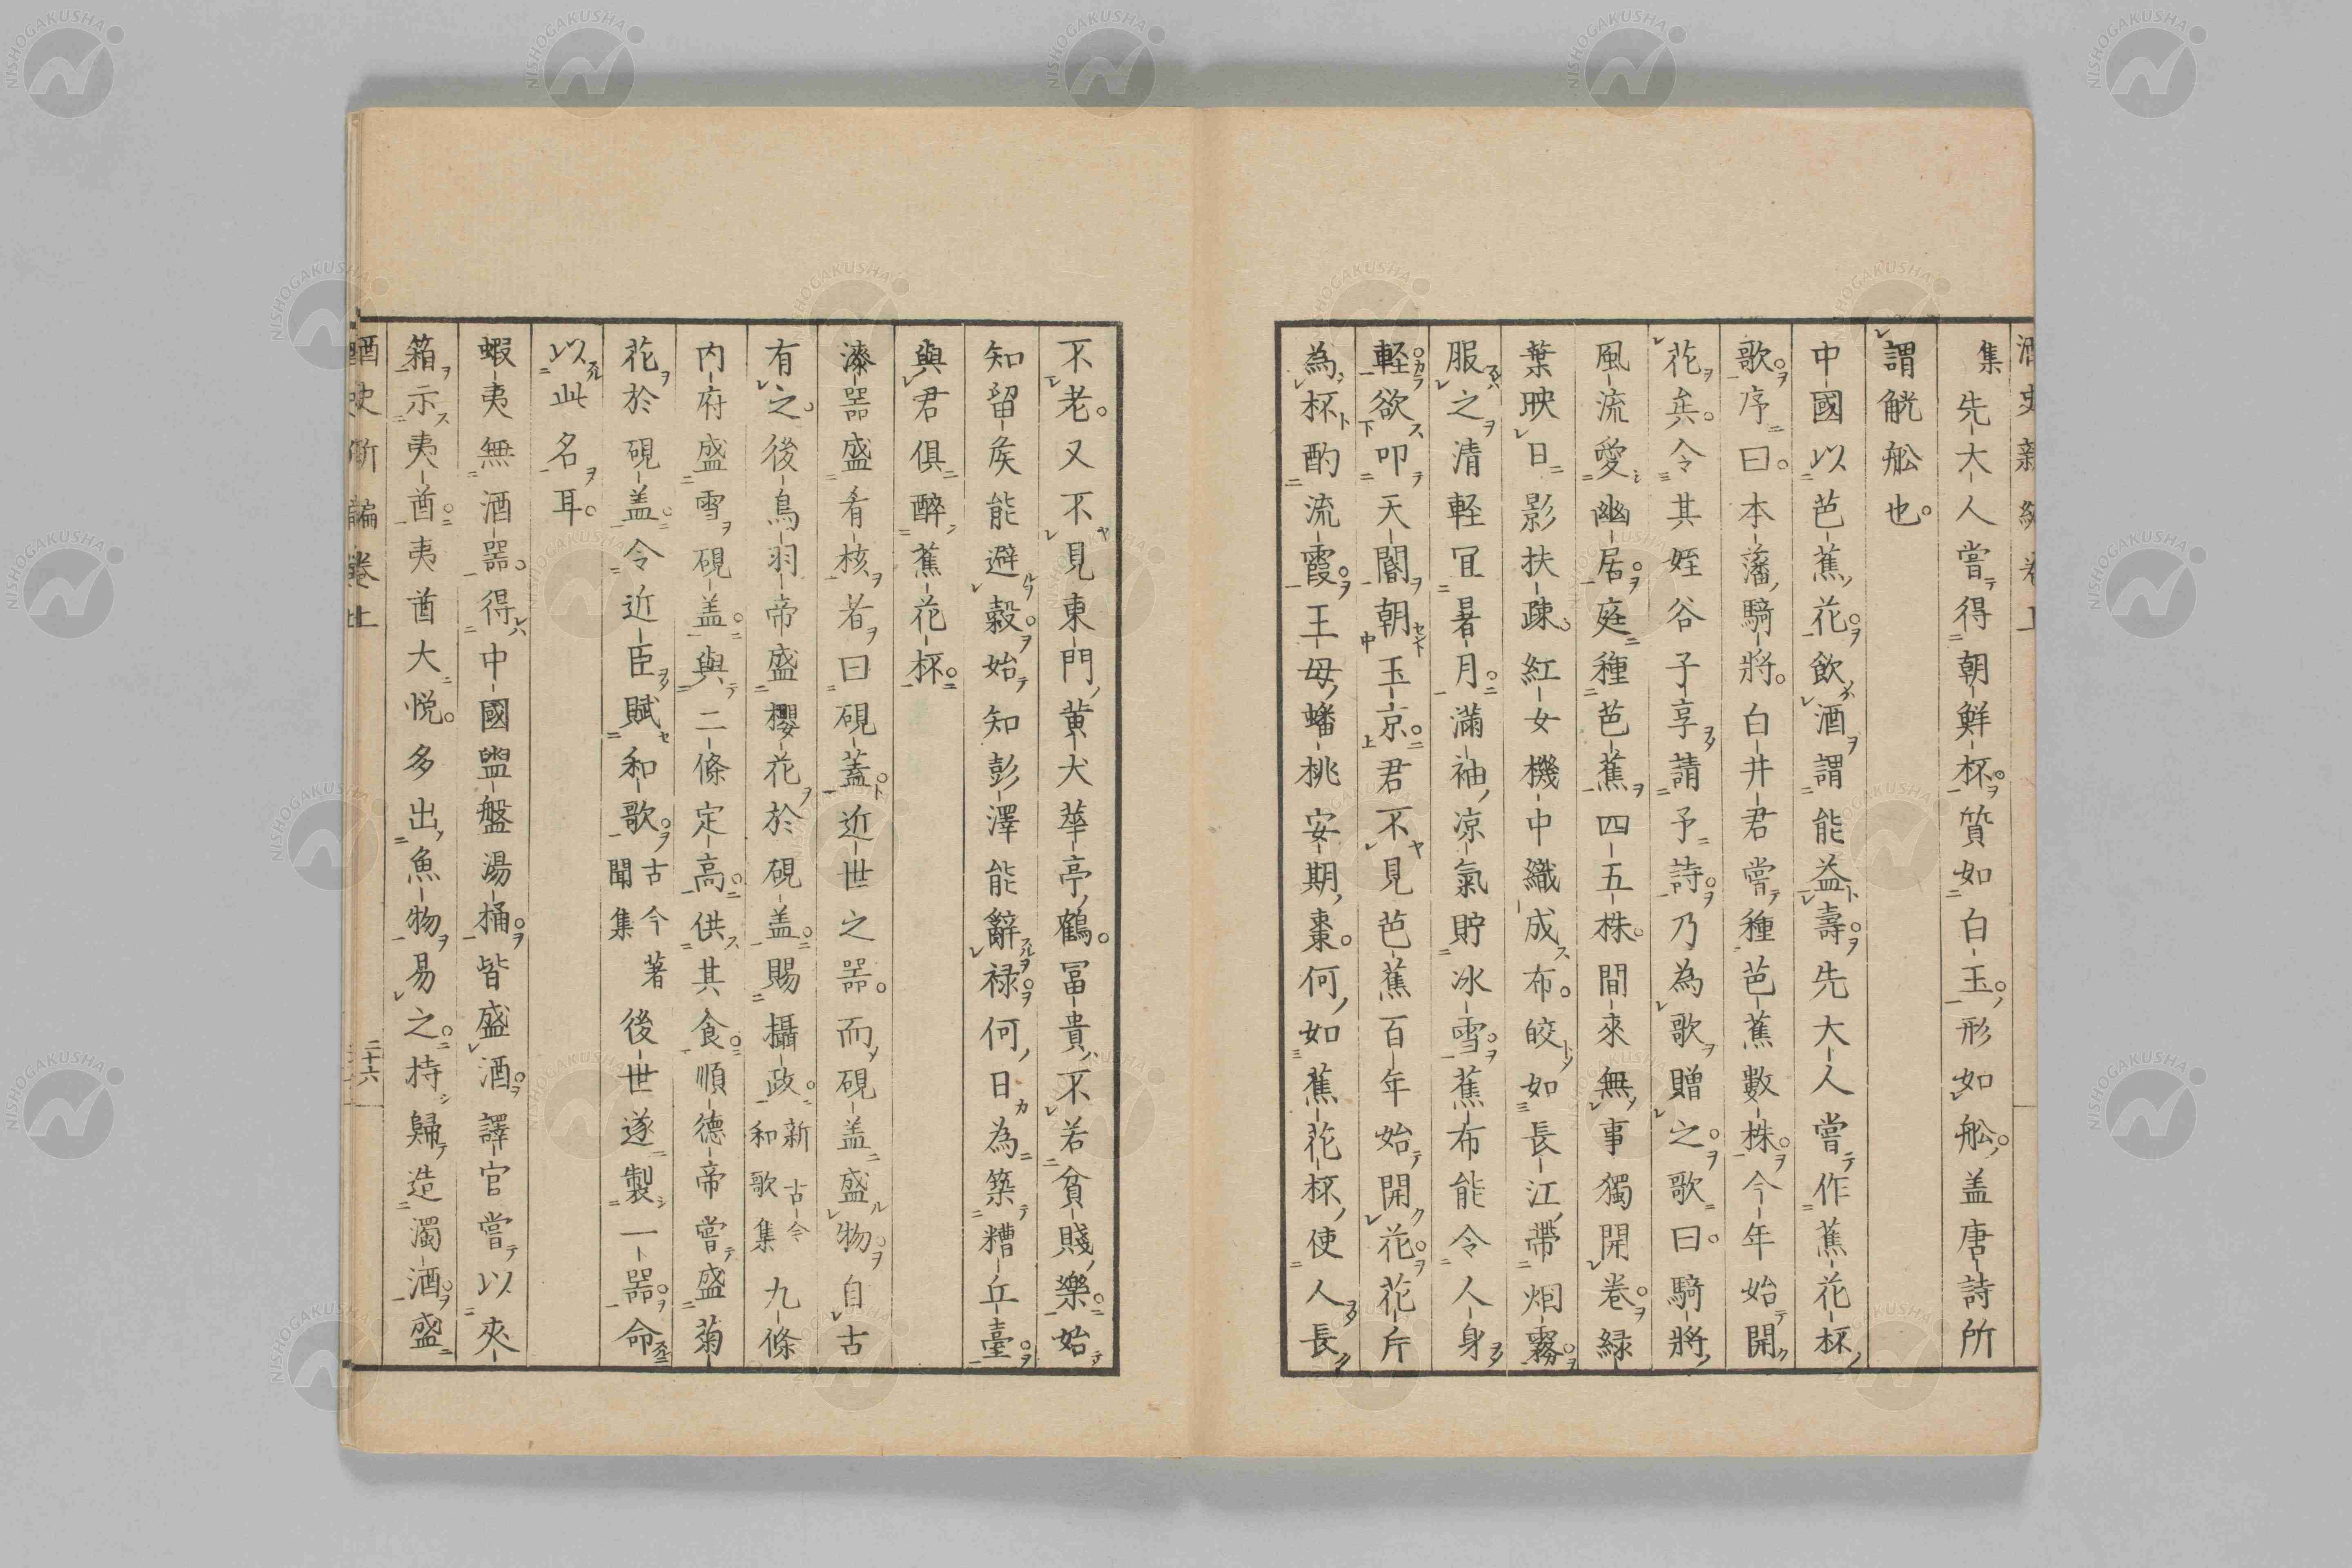 酒史新編卷上
集 先大人嘗得朝鮮杯質如白玉形如舩盖唐詩所
謂觥舩也
中國以芭蕉花飲酒謂能益壽先大人嘗作蕉花杯
歌序曰本藩騎將白井君嘗種芭蕉數株今年始開
花矣令其姪谷子享請予詩乃為歌贈之歌曰騎將
風流愛幽居庭種芭蕉四五株間來無事獨開卷緑
葉映日影扶疎紅女機中織成布皎如長江帶烟霧
服之清輕冝暑月滿袖凉氣貯冰雪蕉布能令人身
軽欲叩天閽朝玉京君不見芭蕉百年始開花花斤
為杯酌流霞王母蟠桃安期棗何如蕉花杯使人長
不老又不見東門黄犬華亭鶴冨貴不若貧賤樂始
知留矦能避穀始知彭澤能辭禄何日為築糟丘臺
與君俱醉蕉花杯
漆器盛肴核者曰硯蓋近世之器而硯盖盛物自古
有之後鳥羽帝盛櫻花於硯盖賜攝政新古今和歌集九條
内府盛雪硯盖與二條定高供其食順德帝嘗盛菊
花於硯盖令近臣賦和歌古今著聞集後世遂製一器命
以此名耳
蝦夷無酒器得中國盥盤湯桶皆盛酒譯官嘗以夾
箱示夷酋夷酋大悦多出魚物易之持歸造濁酒盛
酒史新編卷上
二十六
NISHOGAKUSHA